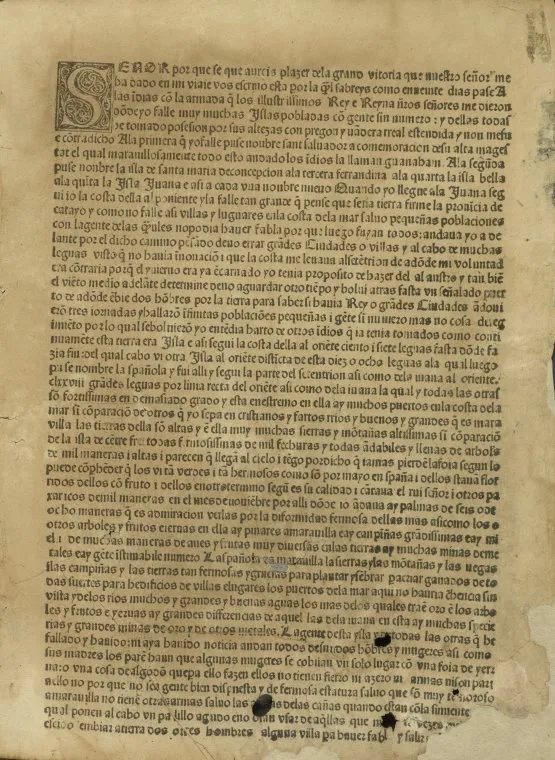 SEÑOR por que se que aureis plazer dela grand vitoria que nuestro señor me
ha dado en mi viaje vos escriuo esta por la q̃l sabreys como en ueinte dias pase A
las īdias cõ la armada q̃ los illustrissimos Rey e Reyna ñros señores me dieron
oõde yo falle muy muchas Islas pobladas cõ gente sin numero : y dellas todas
he tomado posesion por sus altezas con pregon y uãdera real estendida y non mefu
e cõtradicho Ala primera q̃ yofalle puse nonbre sant saluador a comemoracion desu alta mages
tat el qual marauillosamente todo esto andado los īdios la llaman guanahani Ala segũda
puse nonbre la isla de santa maria deconcepcion ala tercera ferrandina ala quarta la isla bella
ala quīta la Isla Juana e asi a cada vna nonbre nueuo Quando yo llegne ala Juana seg
ui io la costa della al poniente yla falle tan grande q̃ pense que seria tierra firme la prouīcia de
catayo y como no falle asi villas y luguares enla costa dela mar saluo pequeñas poblaciones
con lagente delas q̃ules nopodia hauer fabla por que luego fuyan todos: andaua yo a de
lante por el dicho camino pẽsado deuo errar grãdes Ciudades o villas y al cabo de muchas
leguas visto q̃ no hauia inouaciõ i que la costa me leuaua alsetẽtrion de adõde mi voluntad
era cõtraria porq̃ el yuierno era ya ẽcarnado yo tenia proposito de hazer del al austro y tan biẽ
el viẽto medio adelãte determine deno aguardar otro tiẽpo y bolui atras fasta vn señalado puer
to de adõde ẽbie dos hõbres por la tierra para saber si hauia Rey o grãdes Ciudades ãdoui
erõ tres iornadas yhallarõ īfinitas poblaciões pequeñas i gẽte sĩ numero mas no cosa dueg
imiẽto por lo qual sebolnierõ yo entẽdia harto de otros īdios q̃ ia tenia tomados como conti
nuamẽte esta tierra era Isla e asi segui la costa della al oriẽte ciento i siete leguas fasta dõde fa
zia fin: del qual cabo vi otra Isla al oriẽte distīcta de esta diez o ocho leguas ala qual luego
pu se nombre la spañola y fui alli y segui la parte del setentrion asi como dela iuana al oriente.
clxxviii grãdes leguas por linia recta del oriẽte asi como dela iuana la qual y todas las otras
sõ fortissimas en demasiado grado y esta enestremo en ella ay muchos puertos enla costa dela
mar si cõparaciõ de otros q̃ yo sepa en cristianos y fartos rrios y buenos y grandes q̃ es mara
villa las tierras della sõ altas y ẽ ella muy muchas sierras y mõtañas altissimas si cõparaciõ
de la isla de cẽtre fre todas fermosissimas de mil fechuras y todas ãdabiles y llenas de arbols
de mil maneras i altas i parecen q̃ llegã al cielo i tẽgo pordicho q̃ iamas pierdẽ lafoia segun lo
puede cõphẽder q̃ los vi tã verdes i tã hermosos como sõ por mayo en spaña i dellos stauã flor
ridos dellos cõ fruto i dellos enotrotermino segũ es su calidad i cãtaua el rui señor i otros pa
xaricos demil maneras en el mes de nouiẽbre por alli dõde io ãdaua ay palmas de seis ode
ocho maneras q̃ es admiracion verlas por la diformidad fermosa dellas mas asicomo los o
otros arboles y frutos eiernas en ella ay pinares amarauilla eay canpiñas grãdissimas eay mi
el i de muchas maneras de aues y frutas muy diuersas enlas tierras ay muchas minas deme
tales eay gẽte istimabile numero Laspañola es marauilla la sierras ylas mõtañas y las uegas
ilas campiñas y las tierras tan fermosas ygruesas para plantar ysẽbrar pacriar ganados de to
das suertes para hedificios de villas elugares los puertos dela mar aqui no hauria chencia sin
vista ydelos rios muchos y grandes y buenas aguas los mas delos quales traẽ oro ẽ los arbo
les y frutos e yeruas ay grandes differencias de aquel las dela iuana en esta ay muchas specie
rias y grandes minas de oro y de otros metales. Lagente desta ysla y todas las otras q̃ he
fallado y hauido: ni aya hauido noticia andan todos desnudos hõbres y mugeres asi como
sus madres los parẽ haun que algunas mugeres se cobijan vn solo lugar cõ vna foia de yer
ua: o vna cosa de algodõ quepa ello fazen ellos no tienen fierro ni azero ni armas nison para
aello no por que no sea gente bien dispuesta y de fermosa estatura saluo que sõ muy temoroso
amarauilla no tienẽ otras armas saluo las delas cañas quando estan cõla simiente
qual ponen al cabo vn palillo agudo eno osan vsar de aq̃llas que vezes
escido embiar atierra dos otres hombres alguna villa pa hauer fabl y salir